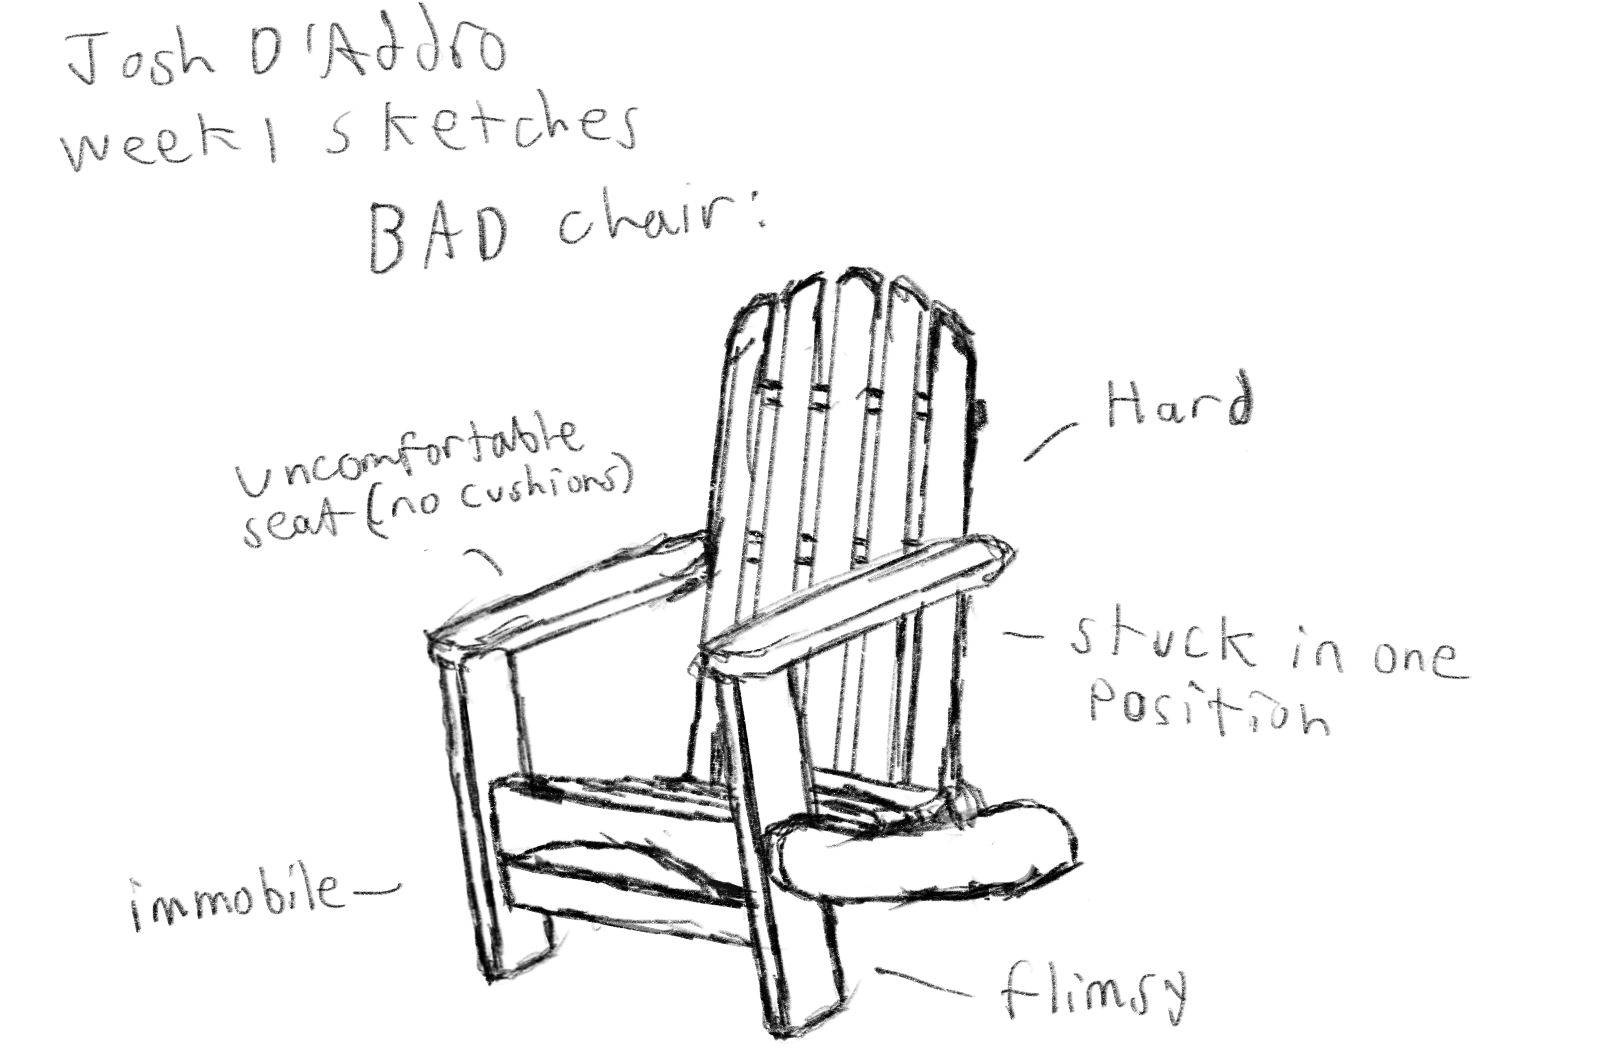 Josh D'Addro
week 1 sketches
BAD chair:
Hard
uncomfortable
seat (no cushions)
stuck in one
position
immobile
flimsy